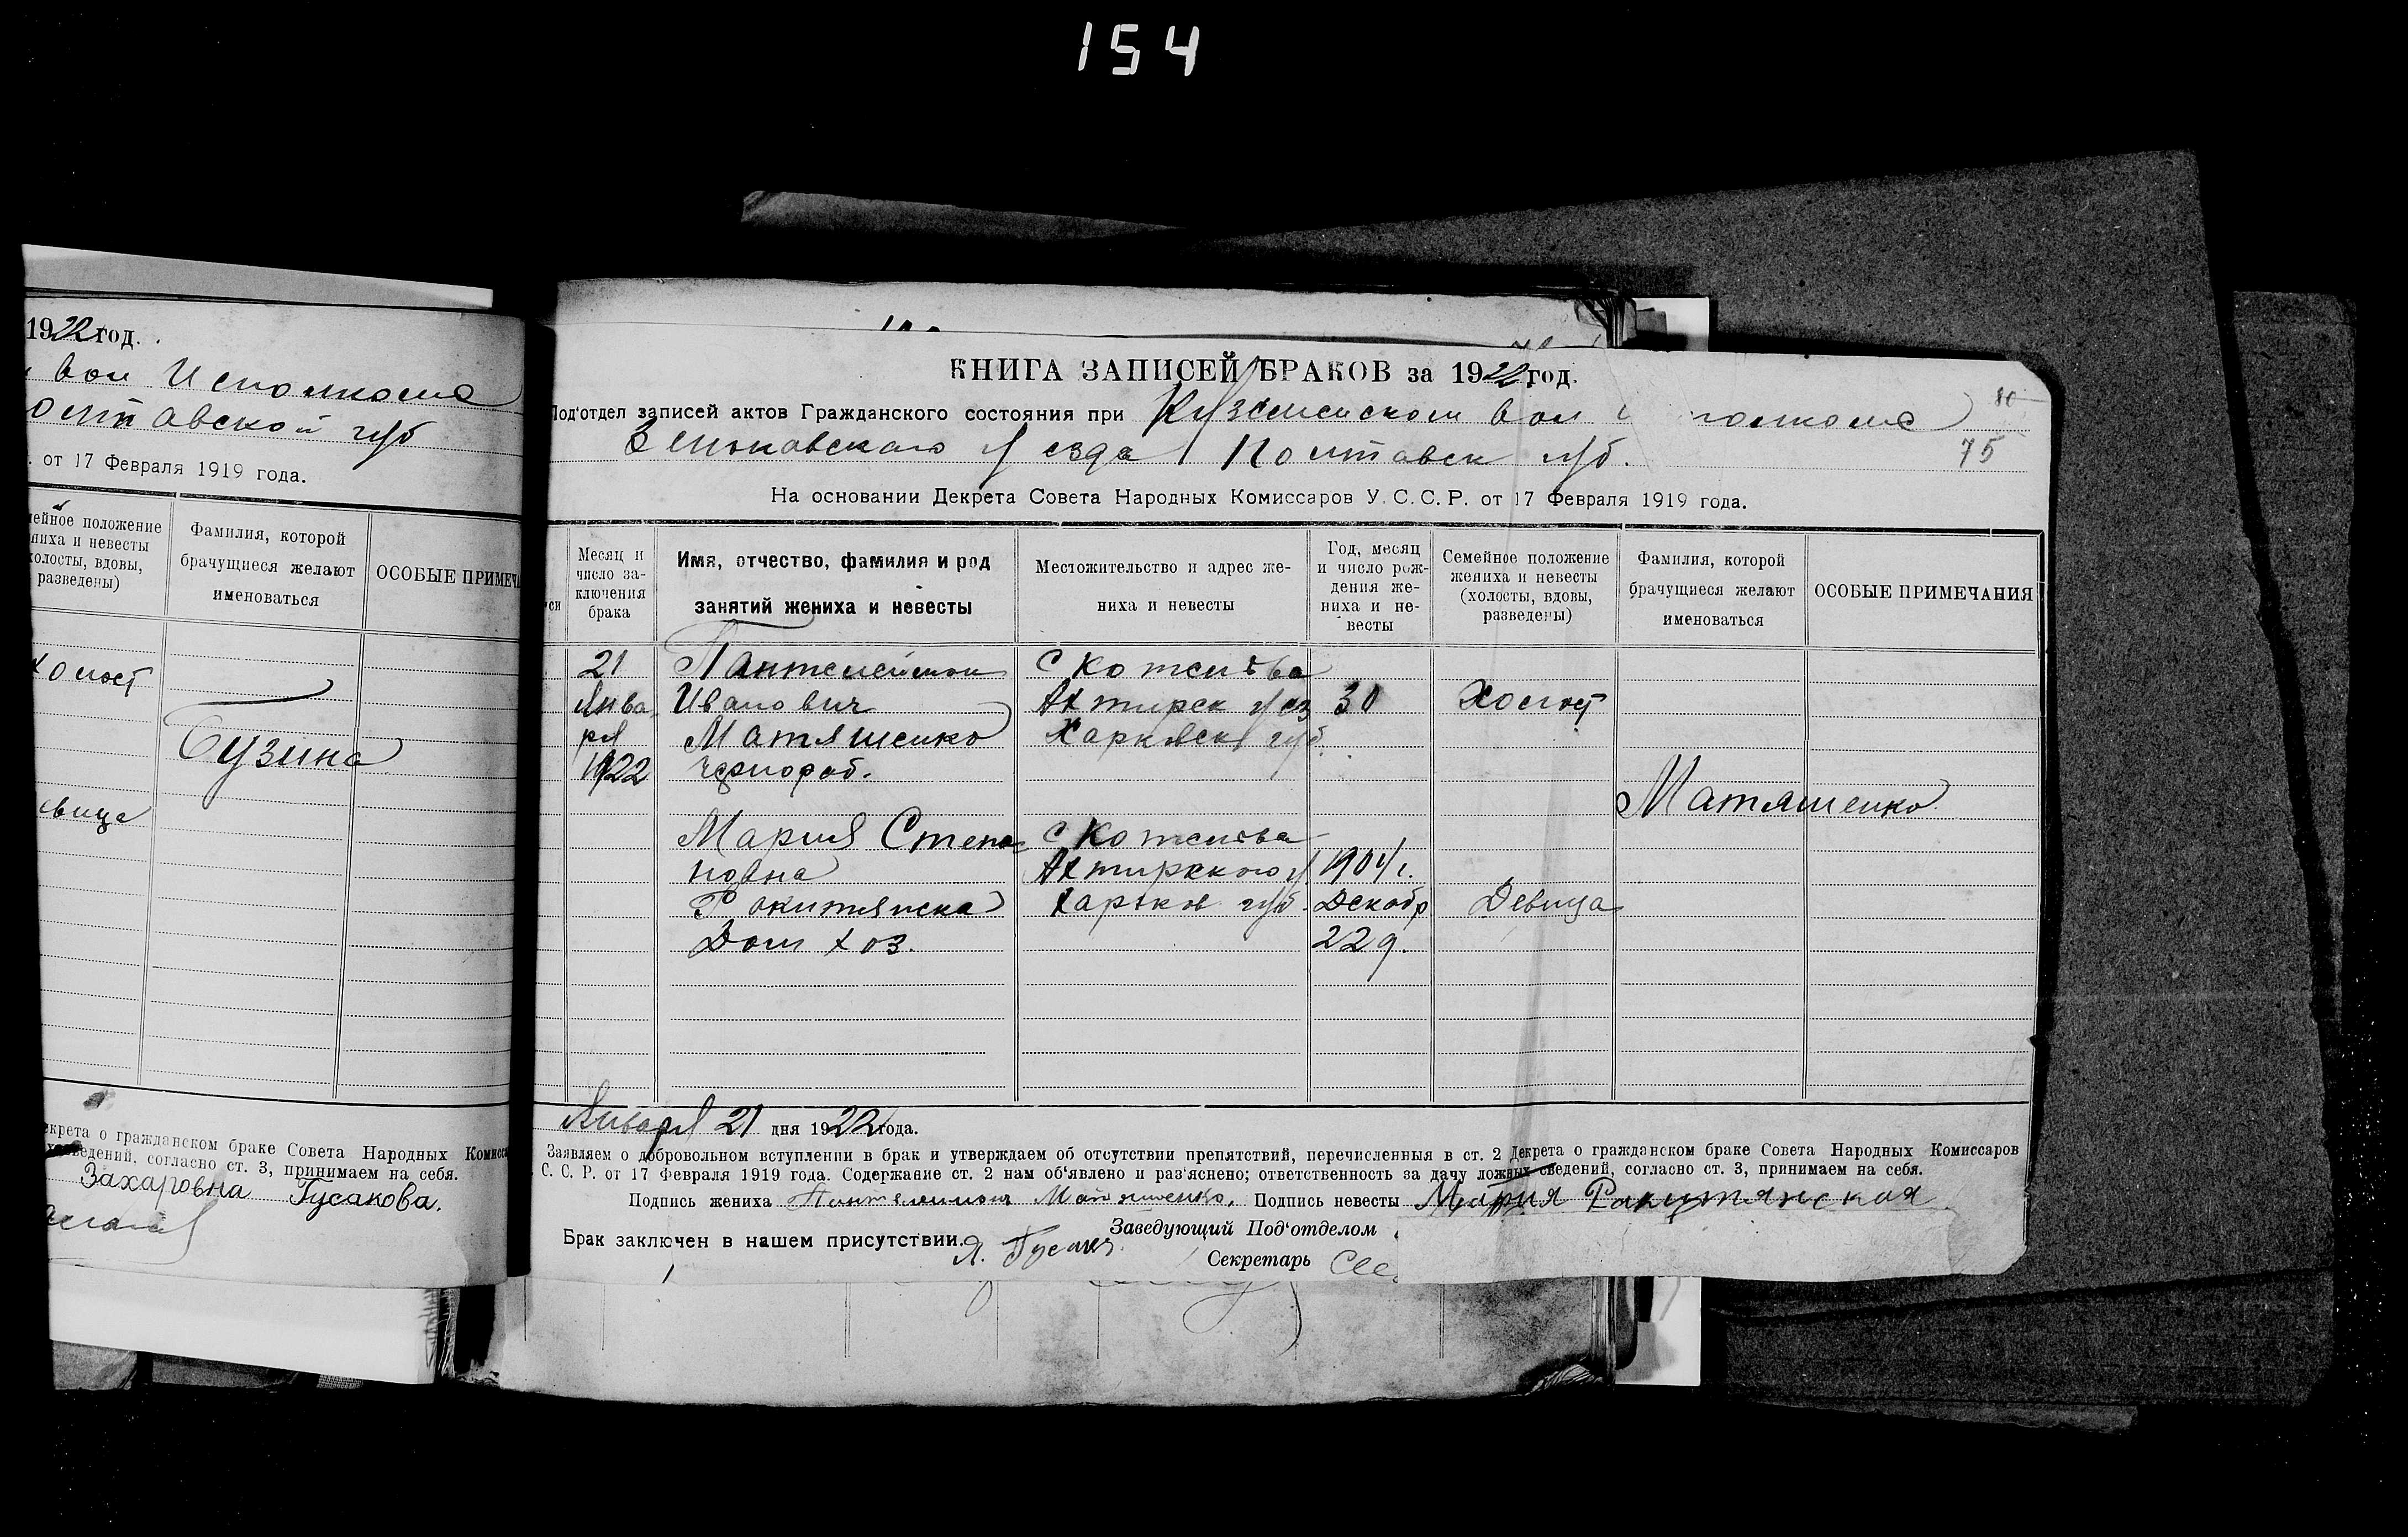 154
1922 год.
вол Исполкома
губ
от 17 Февраля 1919 года.
ейное положение
ниха и невесты
холосты, вдовы,
разведены)
Фамилия, которой
брачущиеся желают
именоваться
ОСОБЫЕ ПРИМЕЧА
холост
Бузина
евица
екрета о гражданском браке Совета Народных Комисса
ведений, согласно ст. 3, принимаем на себя.
Захаровна Гусакова.
КНИГА ЗАПИСЕЙ БРАКОВ за 1922 год.
Под'отдел записей актов Гражданского состояния при Куземенском вол
80
Зеньковского уезда Полтавск губ.
75
На основании Декрета Совета Народных Комиссаров У.С.С.Р. от 17 Февраля 1919 года.
си
Месяц и
число за-
ключения
брака
Имя, отчество, фамилия и род
занятий жениха и невесты
Местожительство и адрес же-
ниха и невесты
Год, месяц
и число рож-
дения же-
ниха и не-
весты
Семейное положение
жениха и невесты
(холосты, вдовы,
разведены)
Фамилия, которой
брачущиеся желают
именоваться
ОСОБЫЕ ПРИМЕЧАНИЯ
21 Пантелеймон с Котельва
Янва- Иванович Ахтирск уез 30 Холост
ря Матяшенко Харьквск губ.
1922 чернораб.
Матяшенко
Мария Степа= с Котельва
новна Ахтирского у. 1904 г.
Рокитянска Харьков губ. Декабр Девица
Дом хоз. 22 д.
Января 21 дня 1922 года.
Заявляем о добровольном вступлении в брак и утверждаем об отсутствии препятствий, перечисленныя в ст. 2 Декрета о гражданском браке Совета Народных Комиссаров
С. С. Р. от 17 Февраля 1919 года. Содержание ст. 2 нам об'явлено и раз'яснено; ответственность за дачу ложных сведений, согласно ст. 3, принимаем на себя.
Подпись жениха Пантелимон Матяшенко, Подпись невесты Мария Ракитянская
Заведующий Под'отделом
Брак заключен в нашем присутствии. Я. Гусак
Секретарь